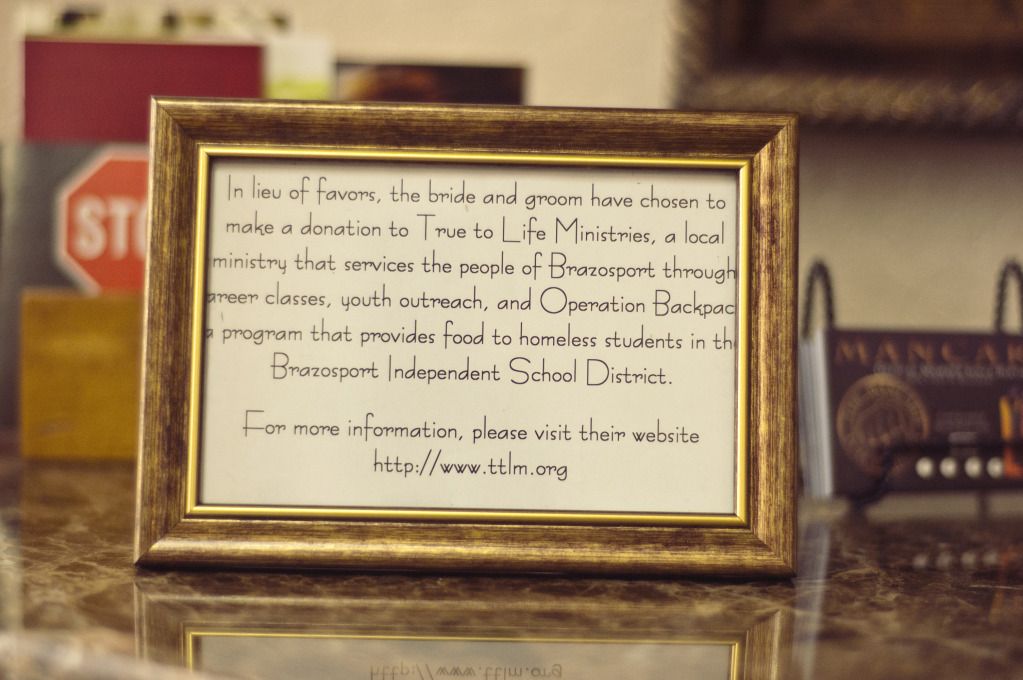 In lieu of favors, the bride and groom have chosen to
make a donation to True to Life Ministries, a local
ministry that services the people of Brazosport through
areer classes, youth outreach, and Operation Backpac
a program that provides food to homeless students in th
Brazosport Independent School District.
For more information, please visit their website
http://www.ttlm.org
STO
MANCA
http://www.ttlm.org